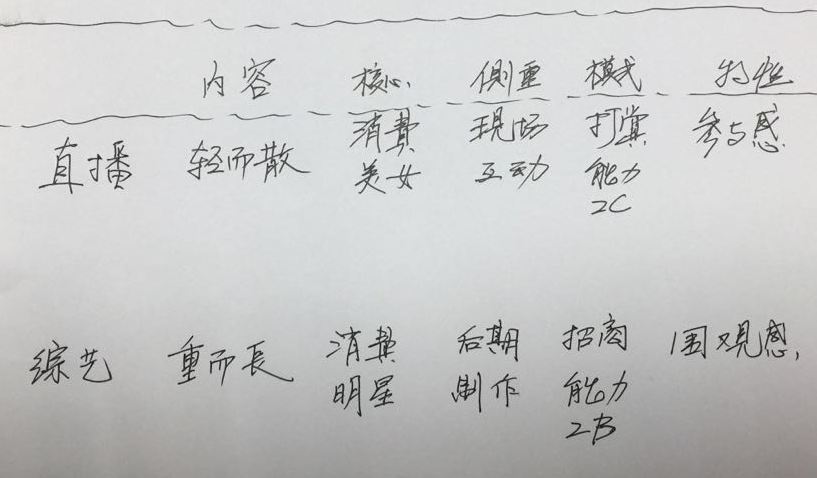 内容 核心 侧重 模式 特性
直播 轻而散 消费 现场 打赏 参与感
美女 互动 能力
2C
综艺 重而長 消费 后期 招商 围观感
明星 制作 能力
2B